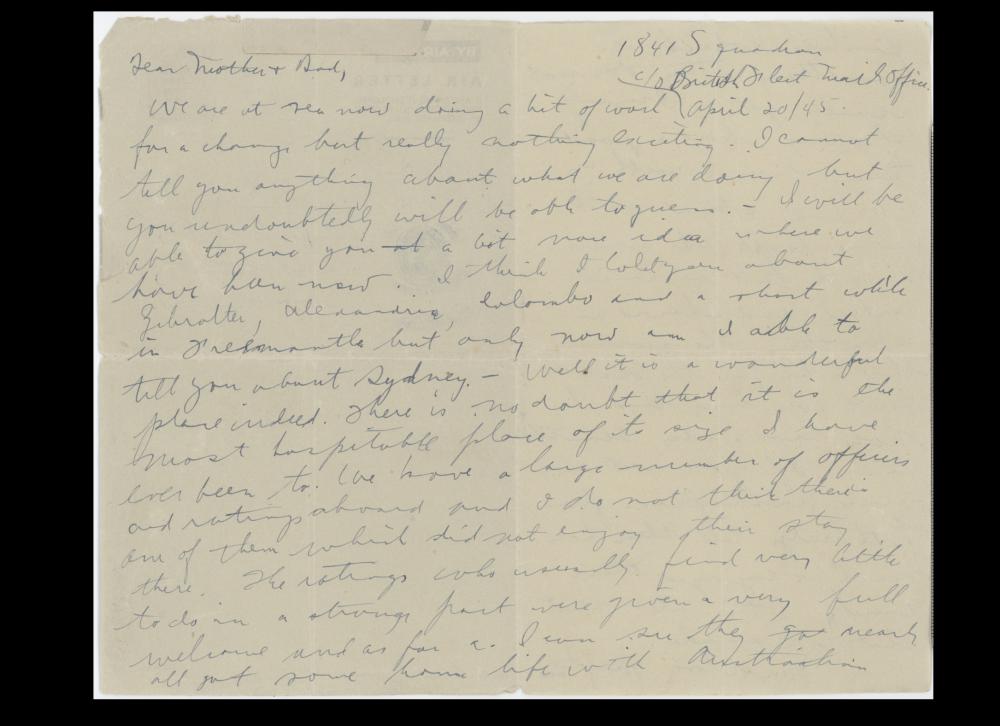 1841 Squadron
c/o British Fleet Mail Office
Dear Mother + Dad,
April 20/45.
We are at sea now doing a bit of work
for a change but really nothing exciting. I cannot
tell you anything about what we are doing but
you undoubtedly will be able to guess. - I will be
able to give you at a bit more idea where we
have been now. I think I told you about
Gibralter, Alexandria, Colombo and a short while
in Freemantle but only now am I able to
tell you about Sydney. - Well it is a wonderful
place indeed. There is no doubt that it is the
most hospitable place of its size I have
ever been to. We have a large number of officers
and ratings aboard and I do not think there is
one of them which did not enjoy their stay
there. The ratings who usually find very little
to do in a strange port were given a very full
welcome and as far as I can see they go nearly
all got some home life with Australian
BY AIR
AIR LETTER